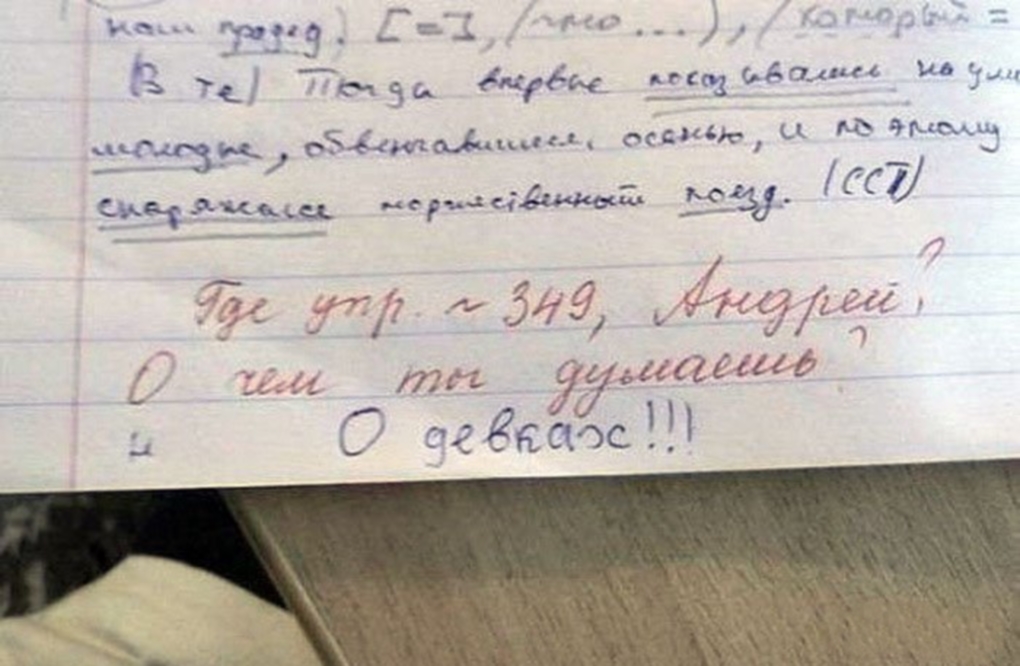 наш прадед. [=], (что...), (который =
(В те) Тогда впервые показывались на ули
молодые, обвенчавшиеся осенью, и поэтому
снаряжался торжественный поезд. (ССП)
Где упр. ~ 349, Андрей?
О чем ты думаешь?
О девках!!!